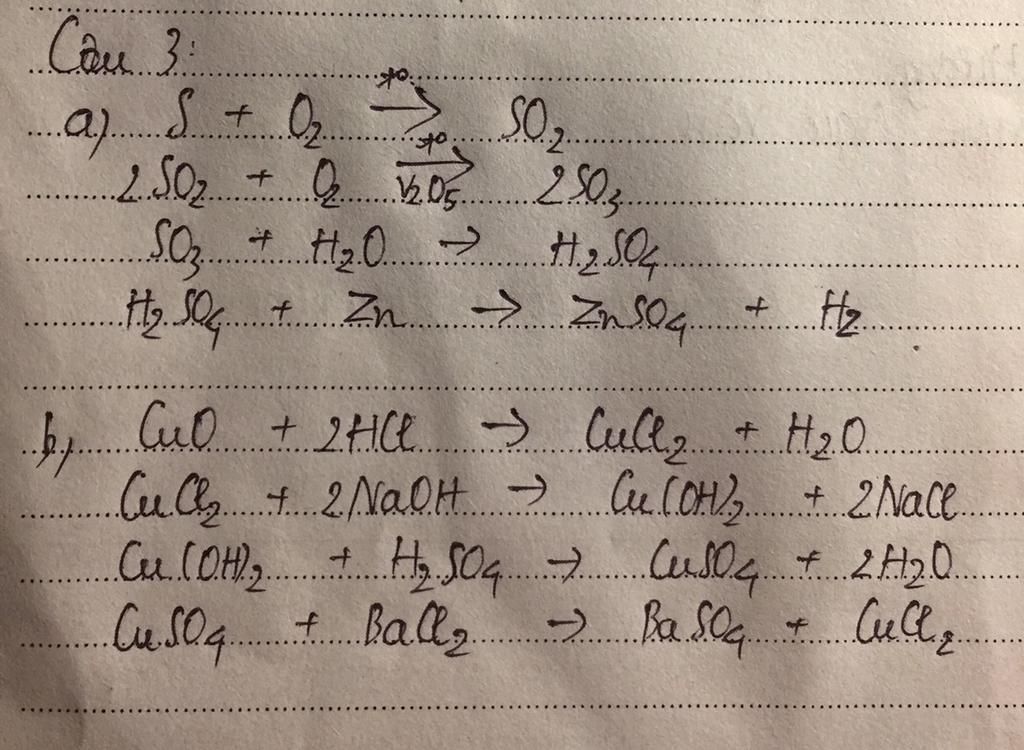 Câu 3:
a) S + O₂ →(t°) SO₂
2SO₂ + O₂ →(t°, V₂O₅) 2SO₃
SO₃ + H₂O → H₂SO₄
H₂SO₄ + Zn → ZnSO₄ + H₂
b) CuO + 2HCl → CuCl₂ + H₂O
CuCl₂ + 2NaOH → Cu(OH)₂ + 2NaCl
Cu(OH)₂ + H₂SO₄ → CuSO₄ + 2H₂O
CuSO₄ + BaCl₂ → BaSO₄ + CuCl₂